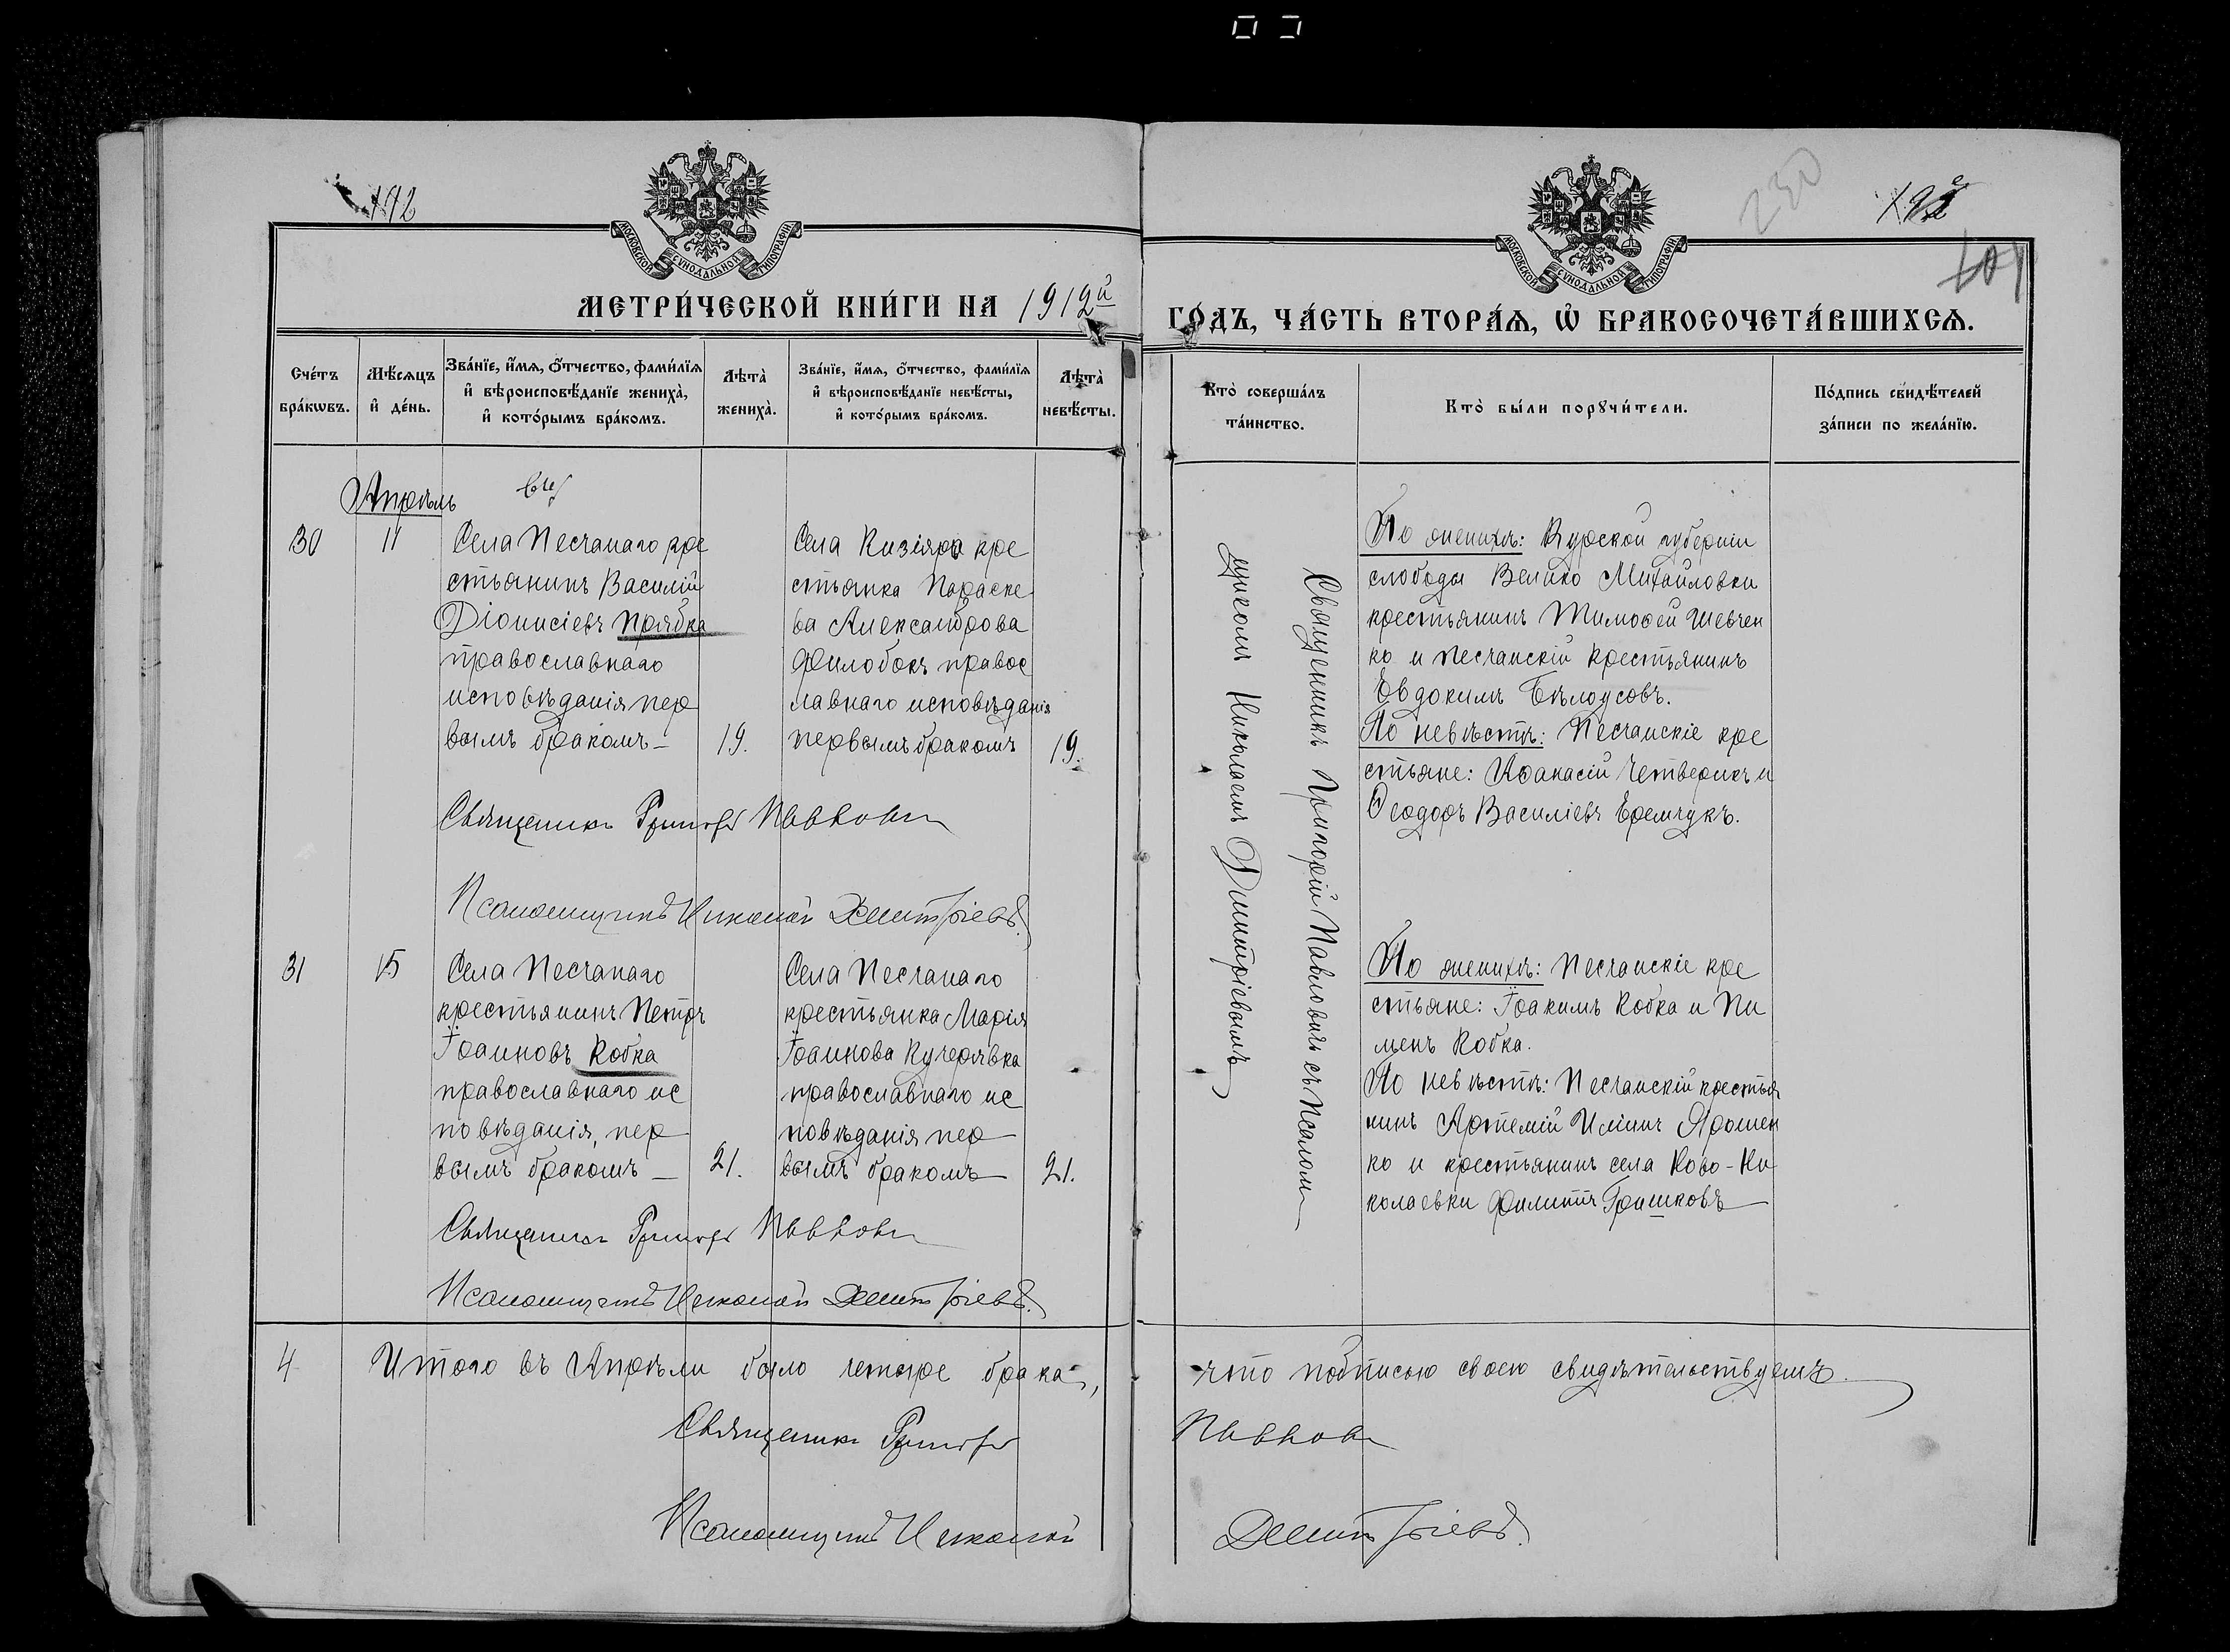 192
МОСКОВСКОЙ СѴНОДАЛЬНОЙ ТИПОГРАФІИ
МЕТРИ́ЧЕСКОЙ КНИ́ГИ НА 1912й
Сче́тъ бра́кѡвъ.
Мѣ́сяцъ и҆ де́нь.
Зва́нїе, и҆́мѧ, ѻ҆́тчество, фами́лїѧ
и҆ вѣроисповѣ́данїе жениха̀,
и҆ кото́рымъ бра́комъ.
Лѣта̀ жениха̀.
Зва́нїе, и҆́мѧ, ѻ҆́тчество, фами́лїѧ
и҆ вѣроисповѣ́данїе невѣ́сты,
и҆ кото́рымъ бра́комъ.
Лѣта̀ невѣ́сты.
Апрѣль
30
11
Села Песчанаго кре
стьянинъ Василій
Діонисіевъ Прябка
православнаго
исповѣданія пер
вымъ бракомъ —
19.
Села Кизіяра кре
стьянка Параске
ва Александрова
Филобокъ правос
лавнаго исповѣданія
первымъ бракомъ
19.
Священникъ Григорій Павловичъ
Псаломщикъ Николай Димитріевъ.
31
15
Села Песчанаго
крестьянинъ Петръ
Іоанновъ Кобка
православнаго ис
повѣданія, пер
вымъ бракомъ —
21.
Села Песчанаго
крестьянка Марія
Іоаннова Кучерявка
православнаго ис
повѣданія пер
вымъ бракомъ
21.
Священникъ Григорій Павловичъ
Псаломщикъ Николай Димитріевъ.
4
Итого въ Апрѣли было четыре брака,
Священникъ Григорій
Псаломщикъ Николай
230
МОСКОВСКОЙ СѴНОДАЛЬНОЙ ТИПОГРАФІИ
ГО́ДЪ, ЧА́СТЬ ВТОРА́Ѧ, Ѽ БРАКОСОЧЕТА́ВШИХСѦ.
Кто̀ соверша́лъ
та́инство.
Кто̀ бы́ли порꙋчи́тели.
По́дпись свидѣ́телей
за́писи по жела́нїю.
Священникъ Григорій Павловичъ съ Псалом
щикомъ Николаемъ Димитріевымъ
По женихѣ: Курской губерніи
слободы Велико Михайловки
крестьянинъ Тимоѳей Шевчен
ко и песчанскій крестьянинъ
Евдокимъ Бѣлоусовъ.
По невѣстѣ: Песчанскіе кре
стьяне: Аѳанасій Четверикъ и
Ѳеодоръ Василіевъ Еремчукъ.
По женихѣ: Песчанскіе кре
стьяне: Іоакимъ Кобка и Пи
менъ Кобка.
По невѣстѣ: Песчанскій крестья
нинъ Артемій Иліинъ Ярошен
ко и крестьянинъ села Ново-Ни
колаевки Филиппъ Грашковъ
что подписью своею свидѣтельствуемъ
Павловичъ
Димитріевъ.